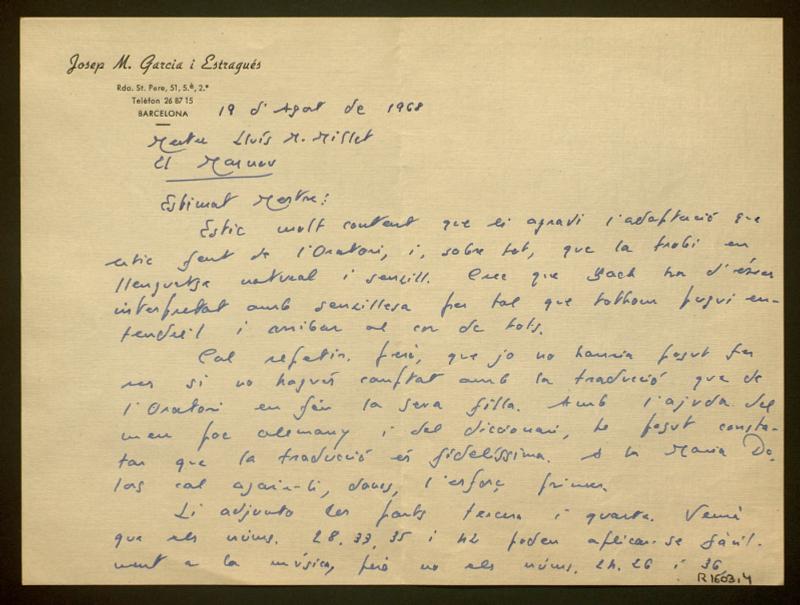 Josep M. Garcia i Estragués
Rda. St. Pere, 51, 5.è, 2.ª
Telèfon 26 87 15
BARCELONA
19 d'Agost de 1968
Mestre Lluís M. Millet
El Masnou
Estimat Mestre:
Estic molt content que li agradi l'adaptació que
estic fent de l'Oratori, i, sobre tot, que la trobi en
llenguatge natural i senzill. Crec que Bach ha d'ésser
interpretat amb senzillesa per tal que tothom pugui en-
tendre'l i arribar al cor de tots.
Cal repetir, però, que jo no hauria pogut fer
res si no hagués comptat amb la traducció que de
l'Oratori en féu la seva filla. Amb l'ajuda del
meu poc alemany i del diccionari, he pogut consta-
tar que la traducció és fidelíssima. A la Maria Do-
lors cal agrair-li, doncs, l'esforç primer.
Li adjunto les parts tercera i quarta. Veurà
que els núms. 28, 33, 35 i 42 poden aplicar-se fàcil-
ment a la música, però no els núms. 24, 26 i 36,
R 1603,4